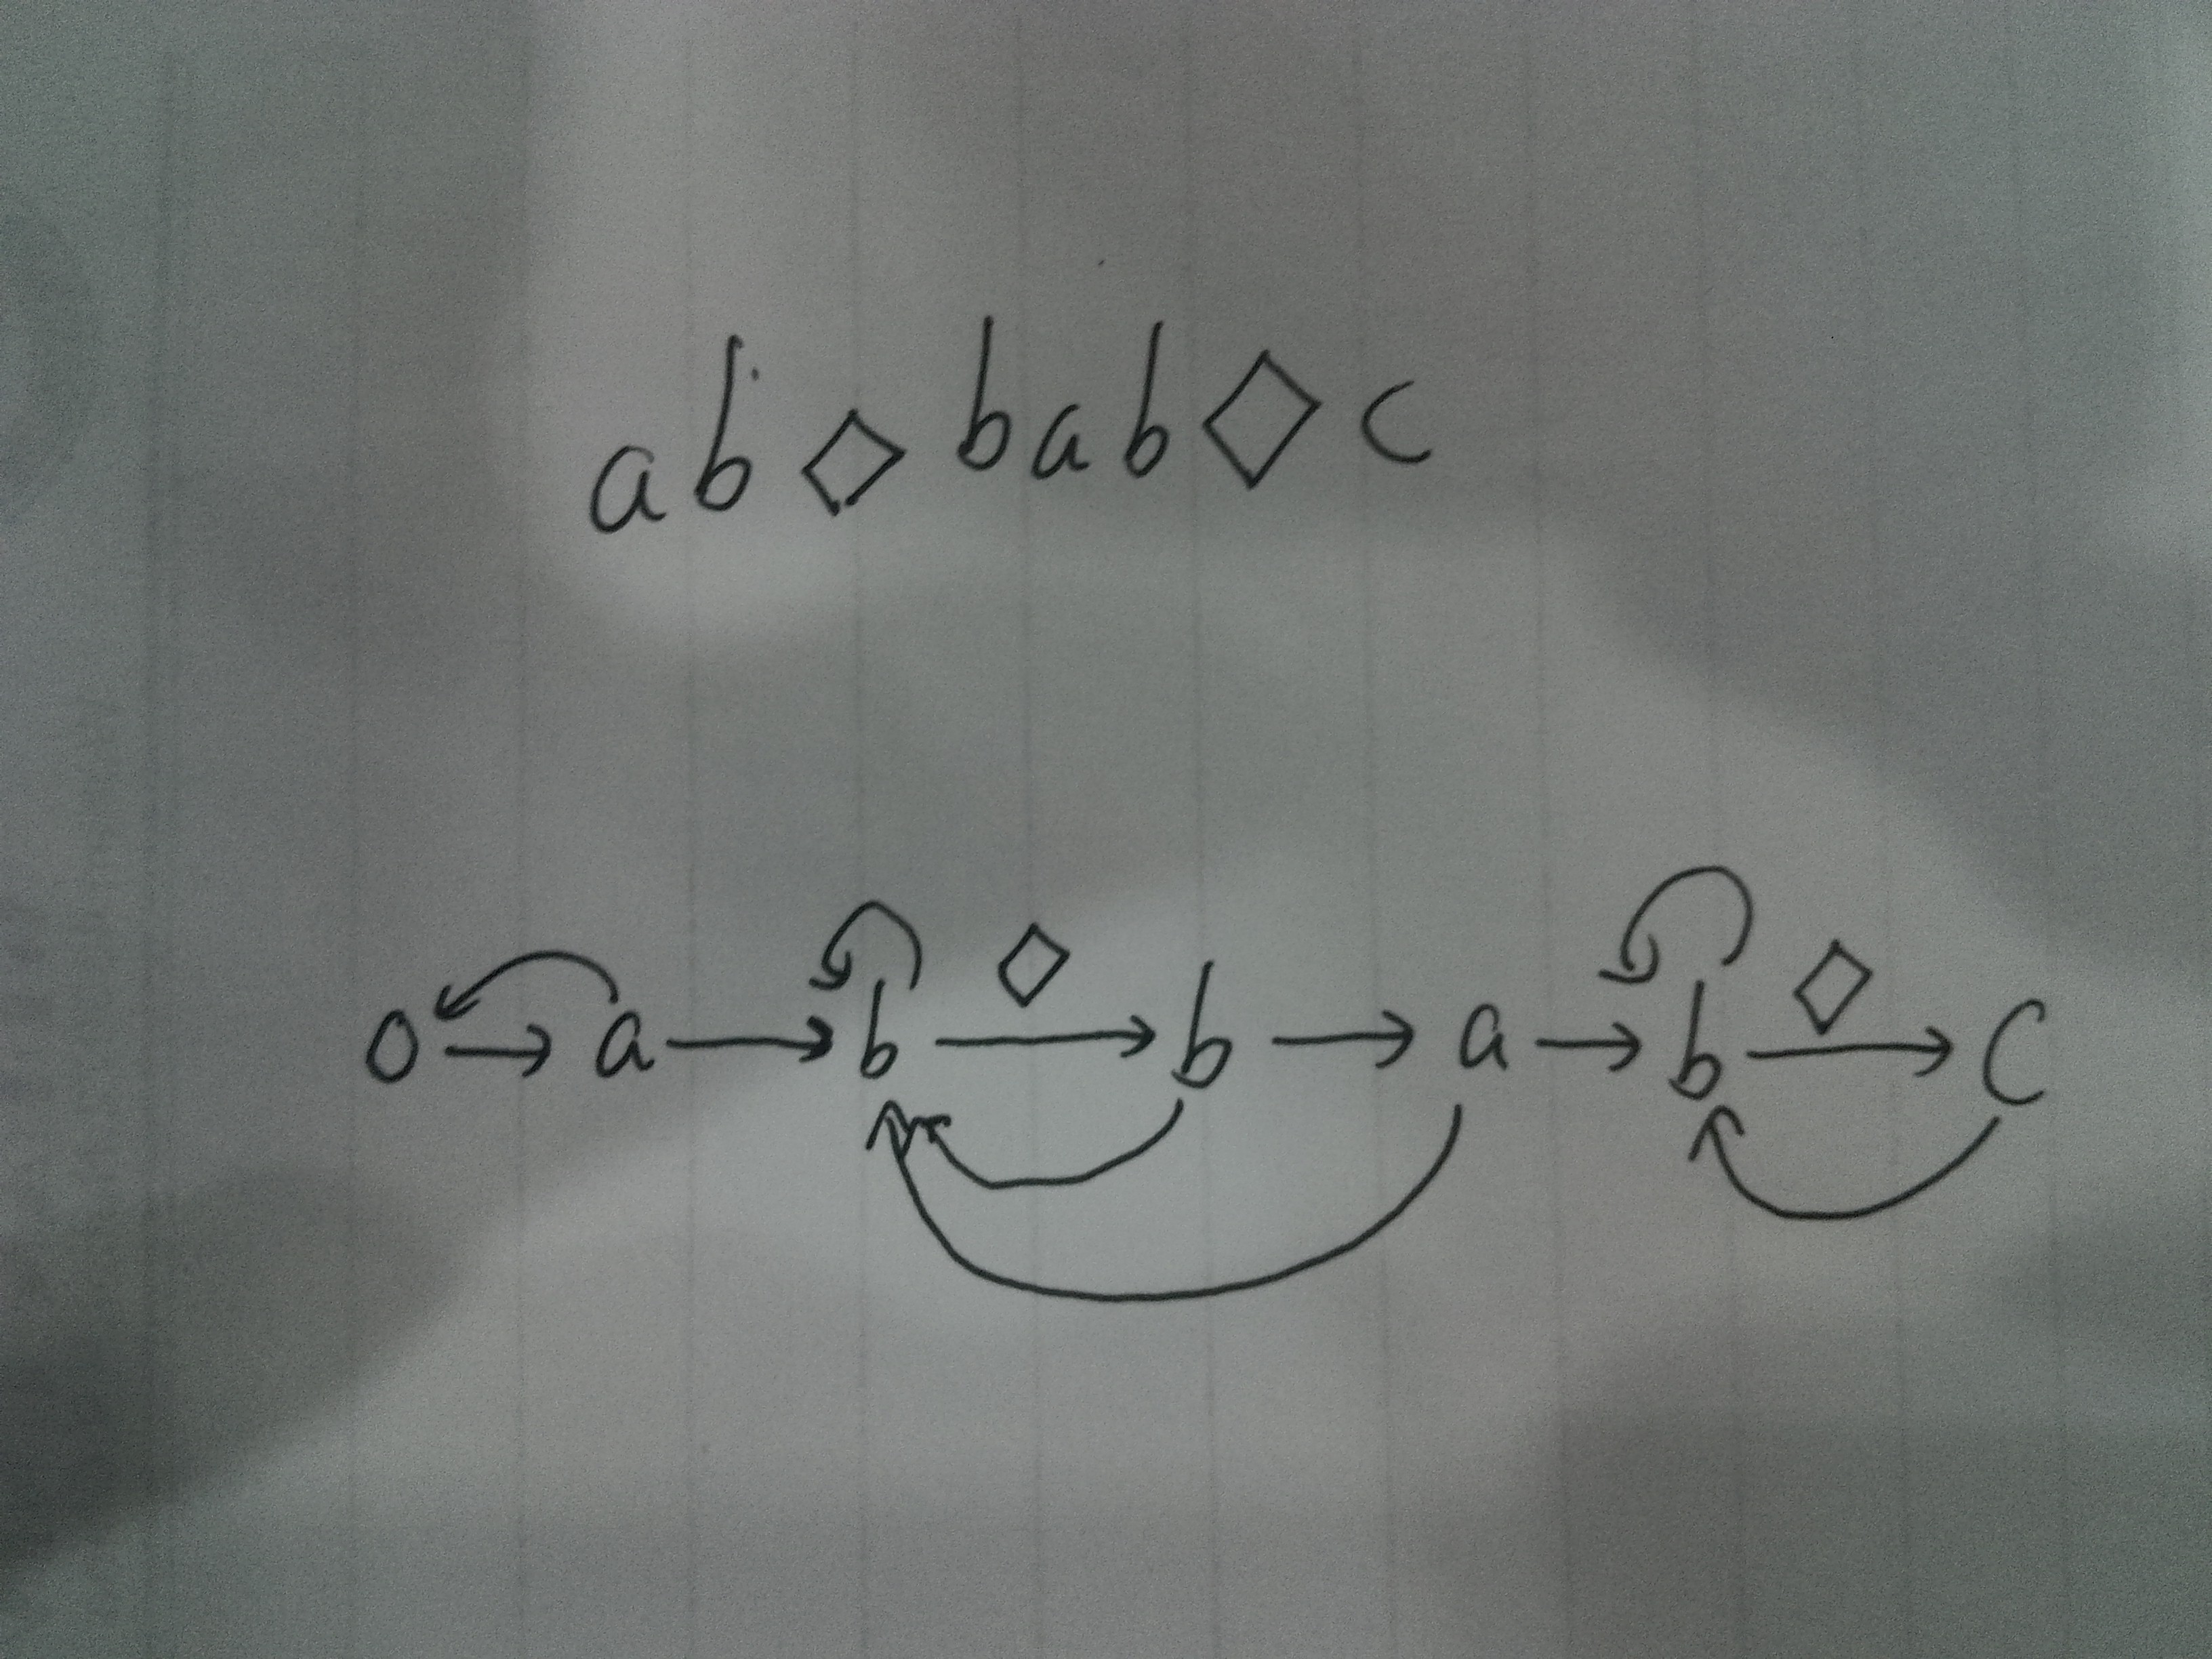 ab◇bab◇c
0→a→b→◇b→a→b→◇c